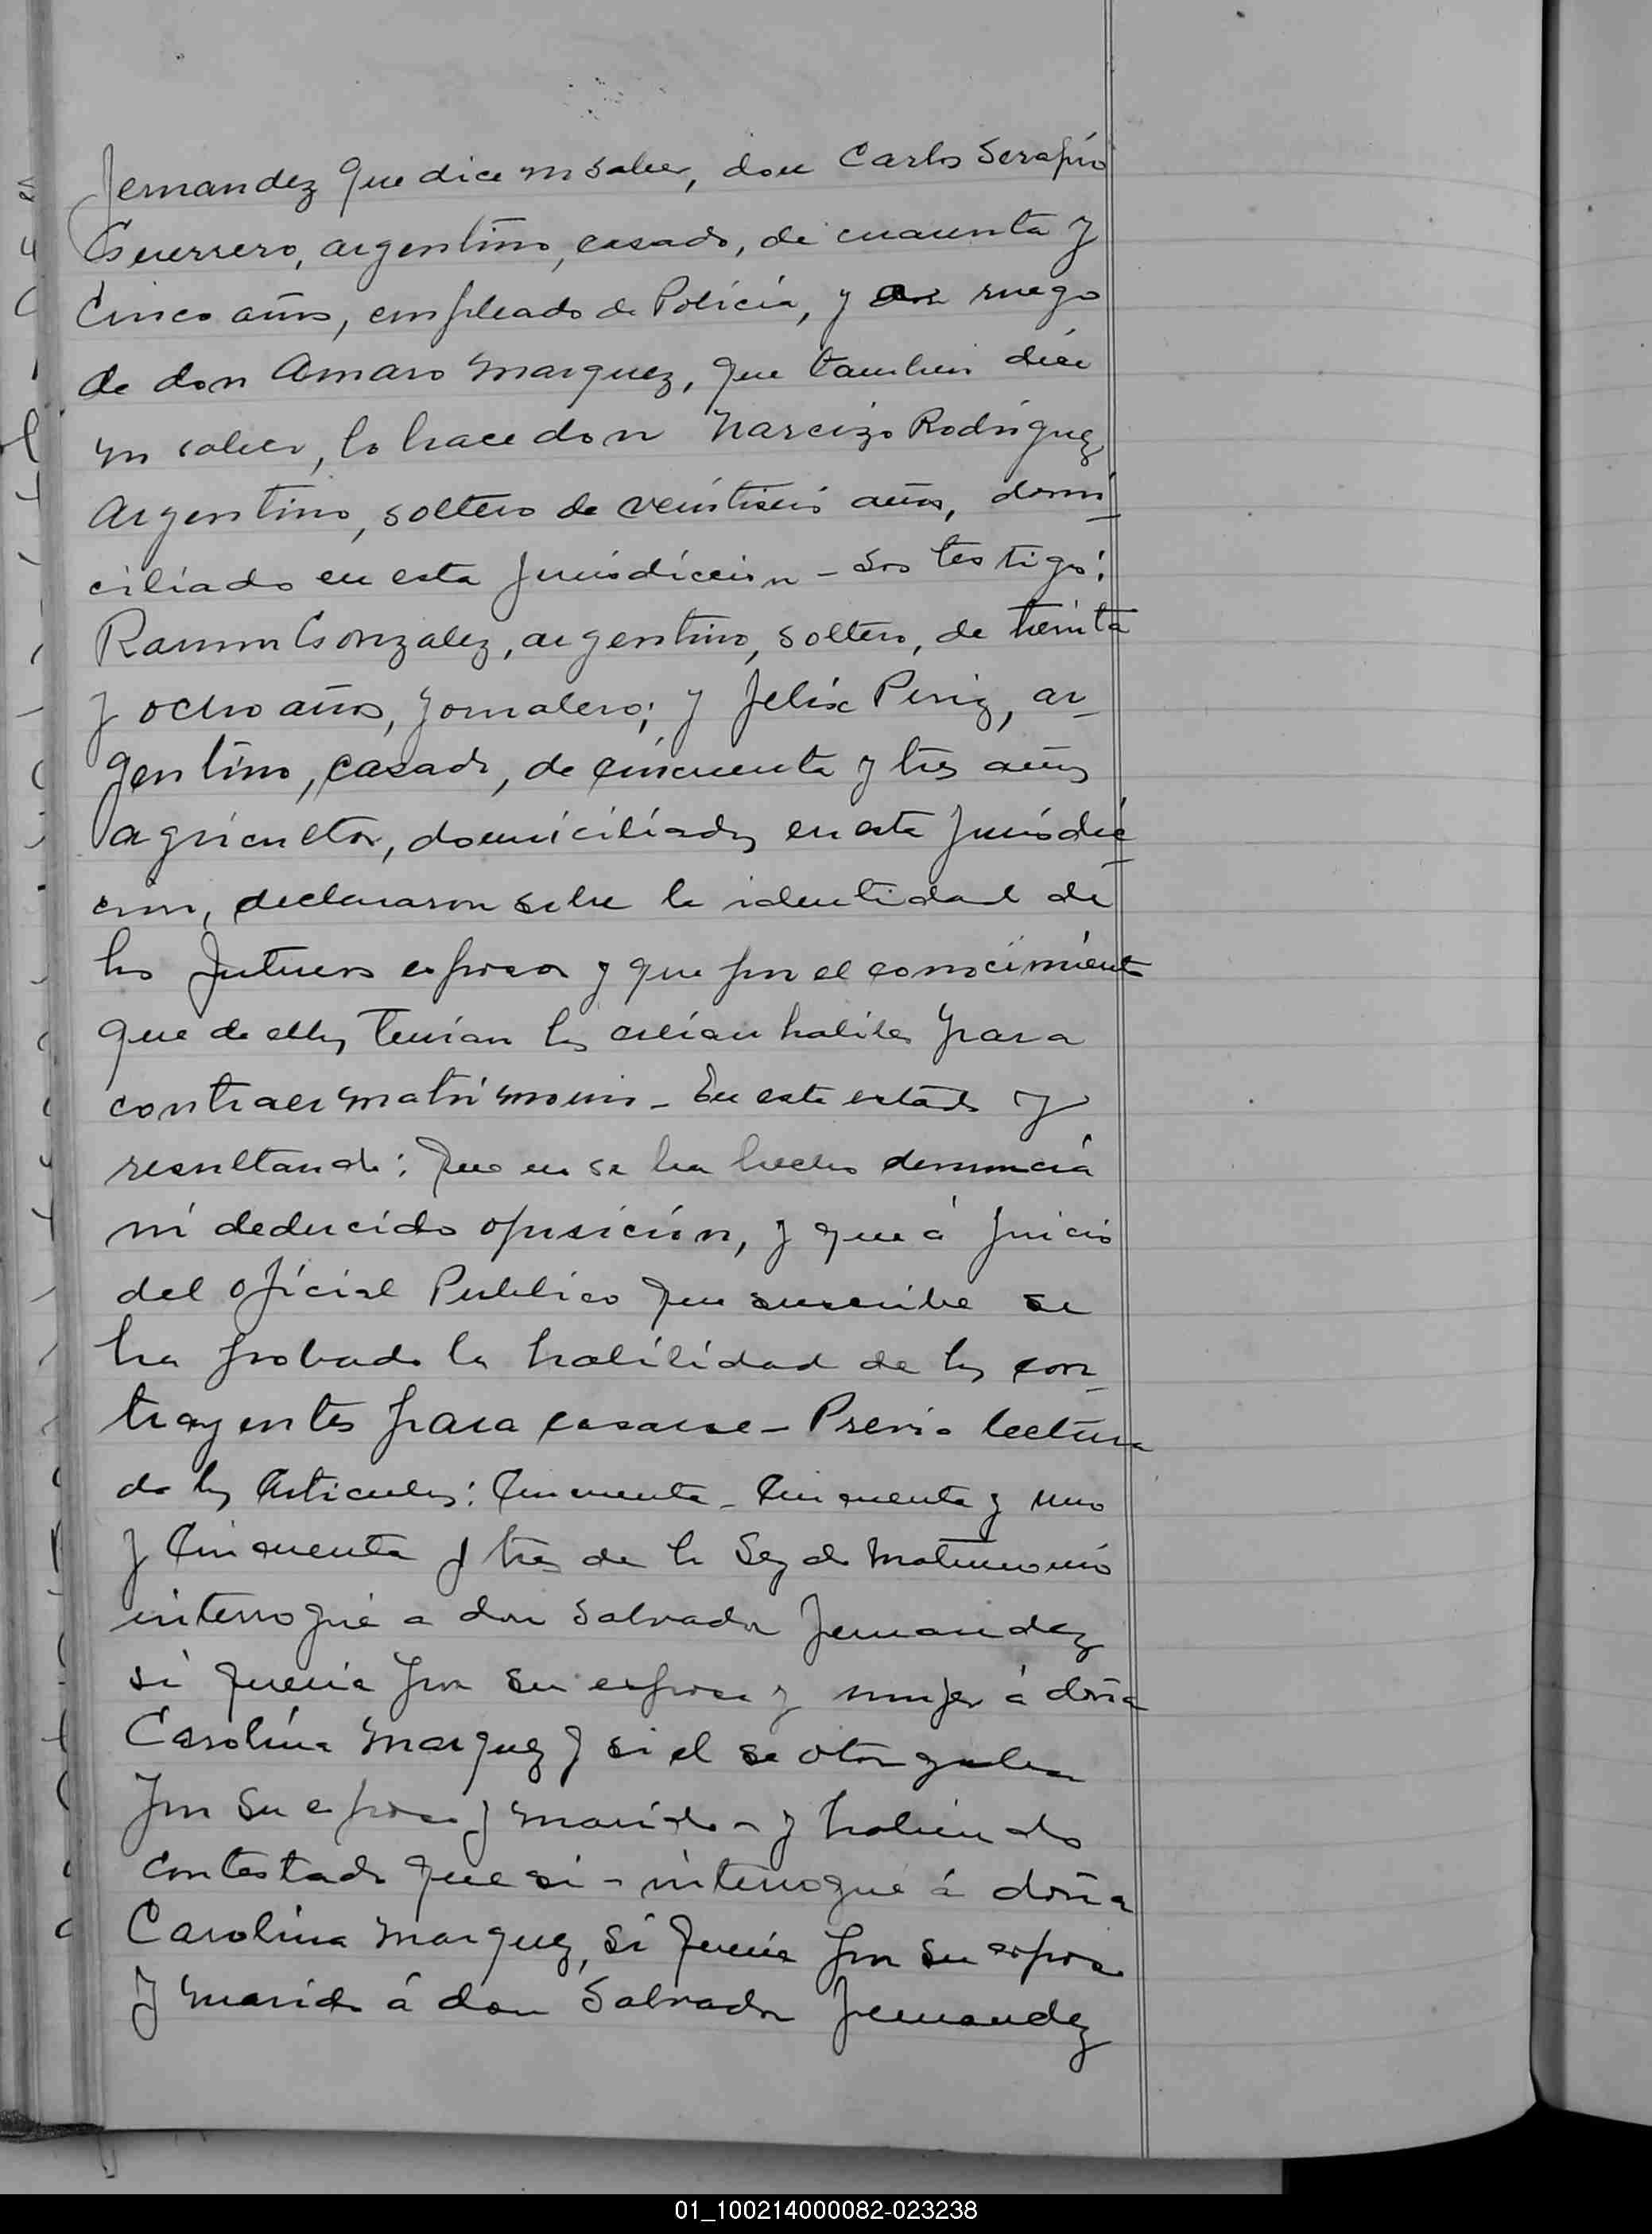 Fernandez que dice no saber, don Carlos Serafin
Guerrero, argentino, casado, de cuarenta y
cinco años, empleado de Policia, y a ruego
de don Amaro Marquez, que tambien dice
no saber, lo hace don Narcizo Rodriguez
Argentino, soltero de veintiseis años, domi-
ciliado en esta jurisdiccion - Los testigos:
Ramon Gonzalez, argentino, soltero, de treinta
y ocho años, jornalero; y Felix Perez, ar-
gentino, casado, de cincuenta y tres años
agricultor, domiciliados en esta jurisdic-
cion, declararon sobre la identidad de
los futuros esposos y que por el conocimiento
que de ellos tenian los creian habiles para
contraer matrimonio - En este estado y
resultando: Que no se ha hecho denuncia
ni deducido oposicion, y que á juicio
del oficial Publico que suscribe se
ha probado la habilidad de los con-
trayentes para casarse - Previa lectura
de los Articulos: Cincuenta - Cincuenta y uno
y Cincuenta y tres de la Ley de Matrimonio
interrogué a don Salvador Fernandez
si queria por su esposa y mujer á doña
Carolina Marquez y si el se otorgaba
por su esposo y marido - y habiendo
contestado que si - interrogué á doña
Carolina Marquez, si queria por su esposo
y marido á don Salvador Fernandez
01_100214000082-023238